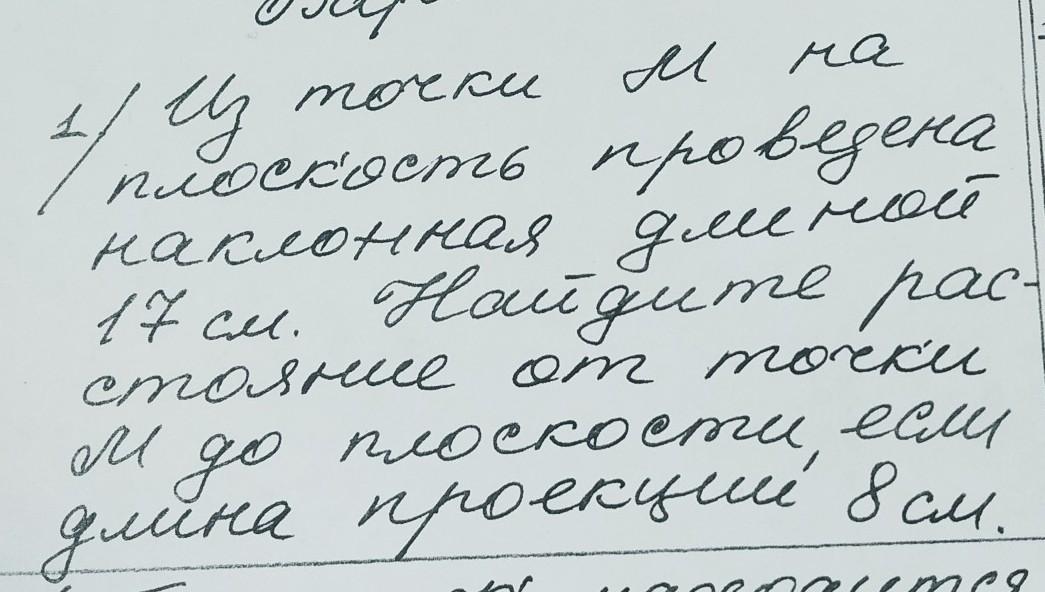 1/ Из точки М на
плоскость проведена
наклонная длиной
17 см. Найдите рас-
стояние от точки
М до плоскости, если
длина проекции 8 см.